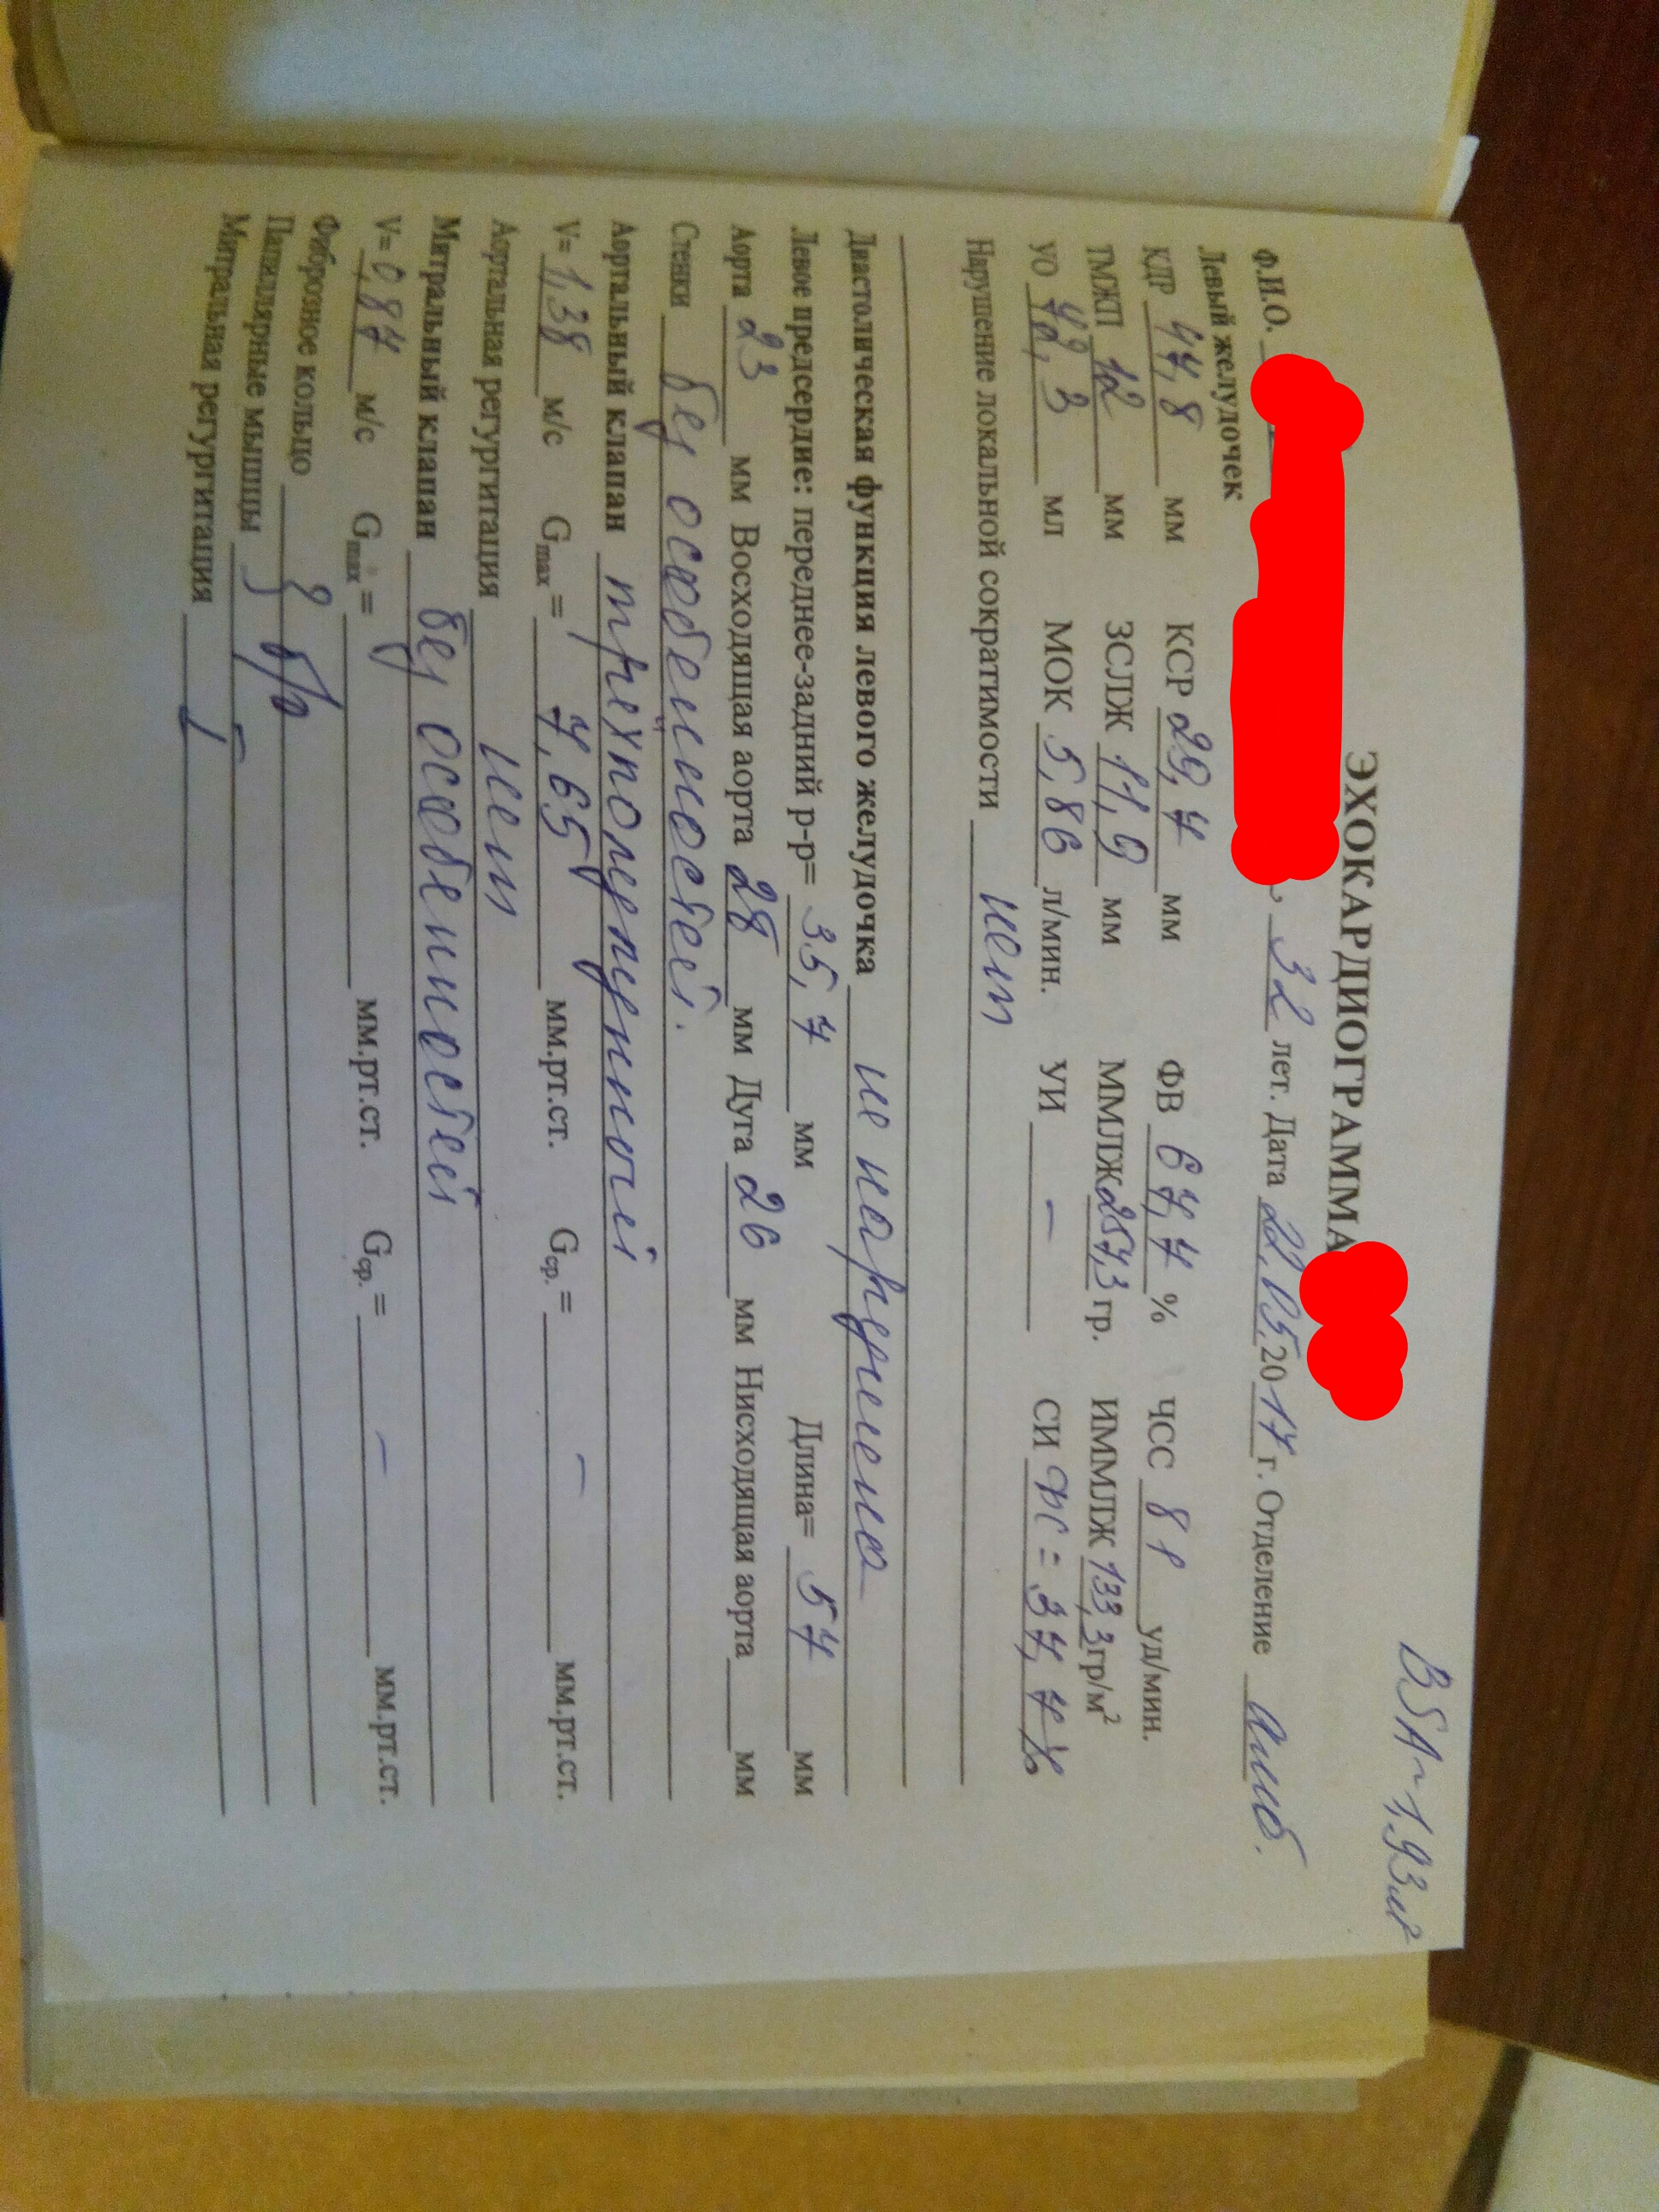 BSA~1,93м²
ЭХОКАРДИОГРАММА
Ф.И.О. 32 лет. Дата 22.05.2017 г. Отделение амб.
Левый желудочек
КДР 47,8 мм КСР 29,7 мм ФВ 67,7 % ЧСС 81 уд/мин.
ТМЖП 12 мм ЗСЛЖ 11,9 мм ММЛЖ 257,3 гр. ИММЛЖ 133,3 гр/м²
УО 72,3 мл МОК 5,86 л/мин. УИ – СИ ФС = 37,7 %
Нарушение локальной сократимости нет
Диастолическая функция левого желудочка не нарушена
Левое предсердие: переднее-задний р-р= 35,7 мм Длина= 57 мм
Аорта 23 мм Восходящая аорта 28 мм Дуга 26 мм Нисходящая аорта мм
Стенки без особенностей.
Аортальный клапан трёхполулунный
V= 1,38 м/с Gmax = 7,65 мм.рт.ст. Gср. = – мм.рт.ст.
Аортальная регургитация нет
Митральный клапан без особенностей
V= 0,87 м/с Gmax = мм.рт.ст. Gср. = – мм.рт.ст.
Фиброзное кольцо
Папиллярные мышцы } б/о
Митральная регургитация